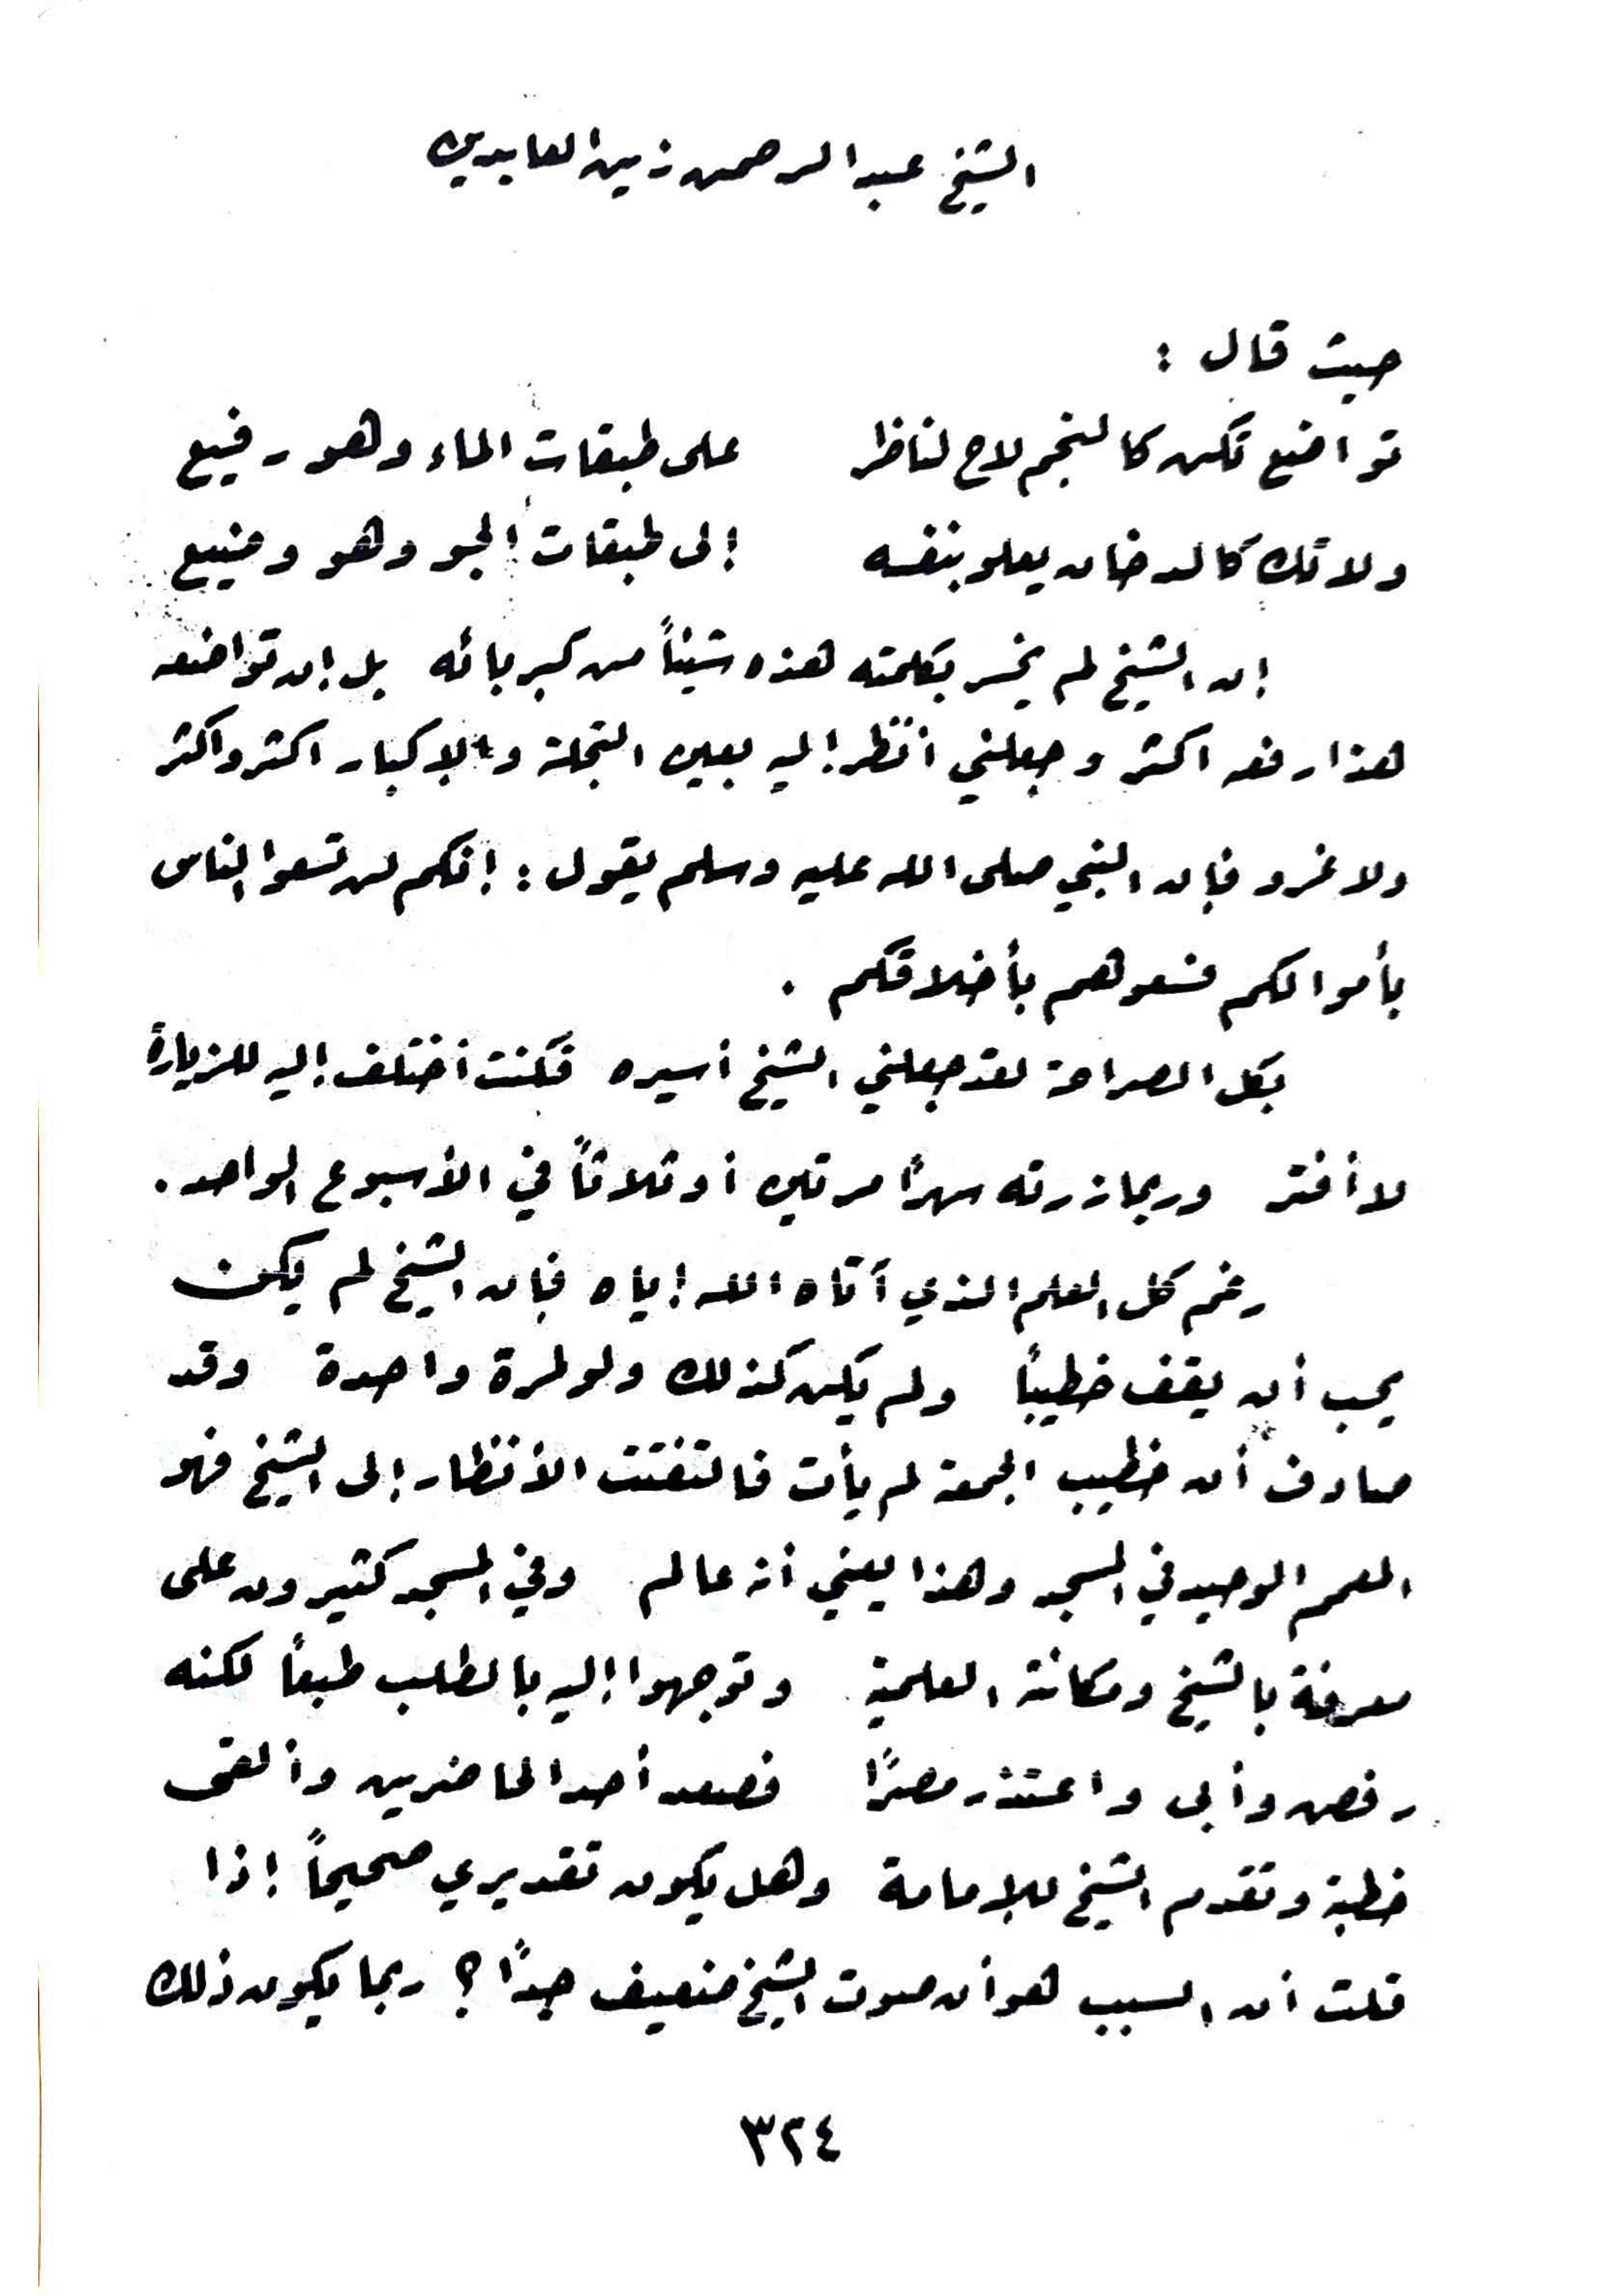 الشيخ عبد الرحمن زين العابدين
حيث قال :
تواضع تكن كالنجم لاح لناظر على طبقات الماء وهو رفيع
ولا تك كالدخان يعلو بنفسه إلى طبقات الجو وهو وضيع
إن الشيخ لم يخسر بكلمته هذه شيئاً من كبريائه بل إن تواضعه
هذا رفعه اكثر وجعلني انظر إليه بعين التجلة والإكبار اكثر واكثر
ولا غرو فإن النبي صلى الله عليه وسلم يقول : إنكم لن تسعوا الناس
بأموالكم فسعوهم بأخلاقكم .
بكل الصراحة لقد جعلني الشيخ أسيره فكنت أختلف إليه للزيارة
لا أفتر وربما زرته سهرًا مرتين أو ثلاثاً في الأسبوع الواحد .
رغم كل العلم الذي آتاه الله إياه فإن الشيخ لم يكن
يحب أن يقف خطيباً ولم يكن كذلك ولو لمرة واحدة وقد
صادف أن خطيب الجمعة لم يأت فالتفتت الأنظار إلى الشيخ فهو
المعمم الوحيد في المسجد وهذا يعني أنه عالم وفي المسجد كثيرون على
معرفة بالشيخ ومكانته العلمية وتوجهوا إليه بالطلب طبعاً لكنه
رفض وأبى واعتذر مصرًا فصعد أحد الحاضرين وألقى
خطبة وتقدم الشيخ للإمامة وهل يكون تقديري صحيحاً إذا
قلت أن السبب هو أن صوت الشيخ ضعيف جدًا ؟ ربما يكون ذلك
٣٢٤